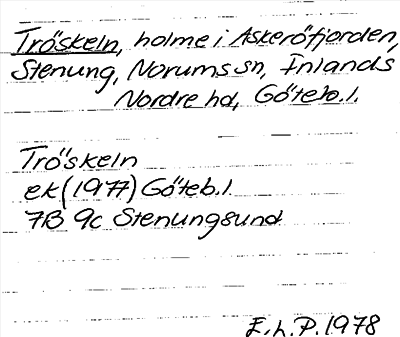 Tröskeln, holme i Askeröfjorden,
Stenung, Norums sn, Inlands
Nordre hd, Göteb.l.
Tröskeln
ek (1977) Göteb.l.
7B 9c Stenungsund
E.h.P. 1978